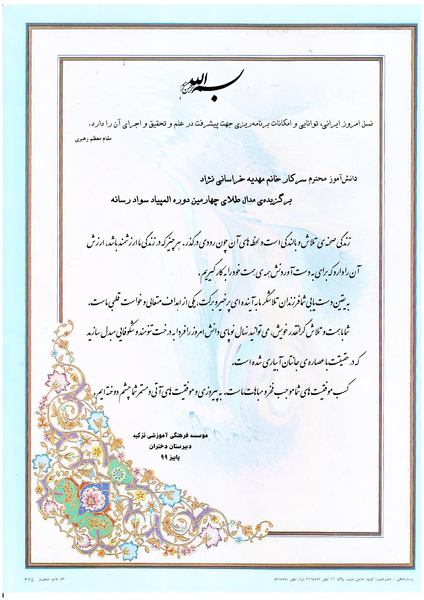 بسم الله الرحمن الرحیم
نسل امروز ایرانی، توانایی و امکانات برنامه‌ریزی جهت پیشرفت در علم و تحقیق و اجرای آن را دارد.
مقام معظم رهبری
دانش‌آموز محترم سرکار خانم مهدیه خراسانی نژاد
برگزیده‌ی مدال طلای چهارمین دوره المپیاد سواد رسانه
زندگی صحنه‌ی تلاش و بالندگی است و لحظه‌های آن چون رودی در گذر. هر چیز که در زندگی ما ارزشمند باشد، ارزش
آن را دارد که برای به دست آوردنش همه‌ی همت خود را به کار گیریم.
به یقین دست‌یابی شما فرزندان تلاشگر ما به آینده‌ای پر خیر و برکت، یکی از اهداف متعالی و خواست قلبی ماست.
شما با همت و تلاش گرانقدر خویش، می‌توانید نهال نوپای دانش امروز را فردا به درخت تنومند و شکوفایی مبدل سازید
که در حقیقت با عصاره‌ی جانتان آبیاری شده است.
کسب موفقیت‌های شما موجب فخر و مباهات ماست. به پیروزی و موفقیت‌های آتی و مستمر شما چشم دوخته‌ایم.
موسسه فرهنگی آموزشی تزکیه
دبیرستان دختران
پاییز ۹۹